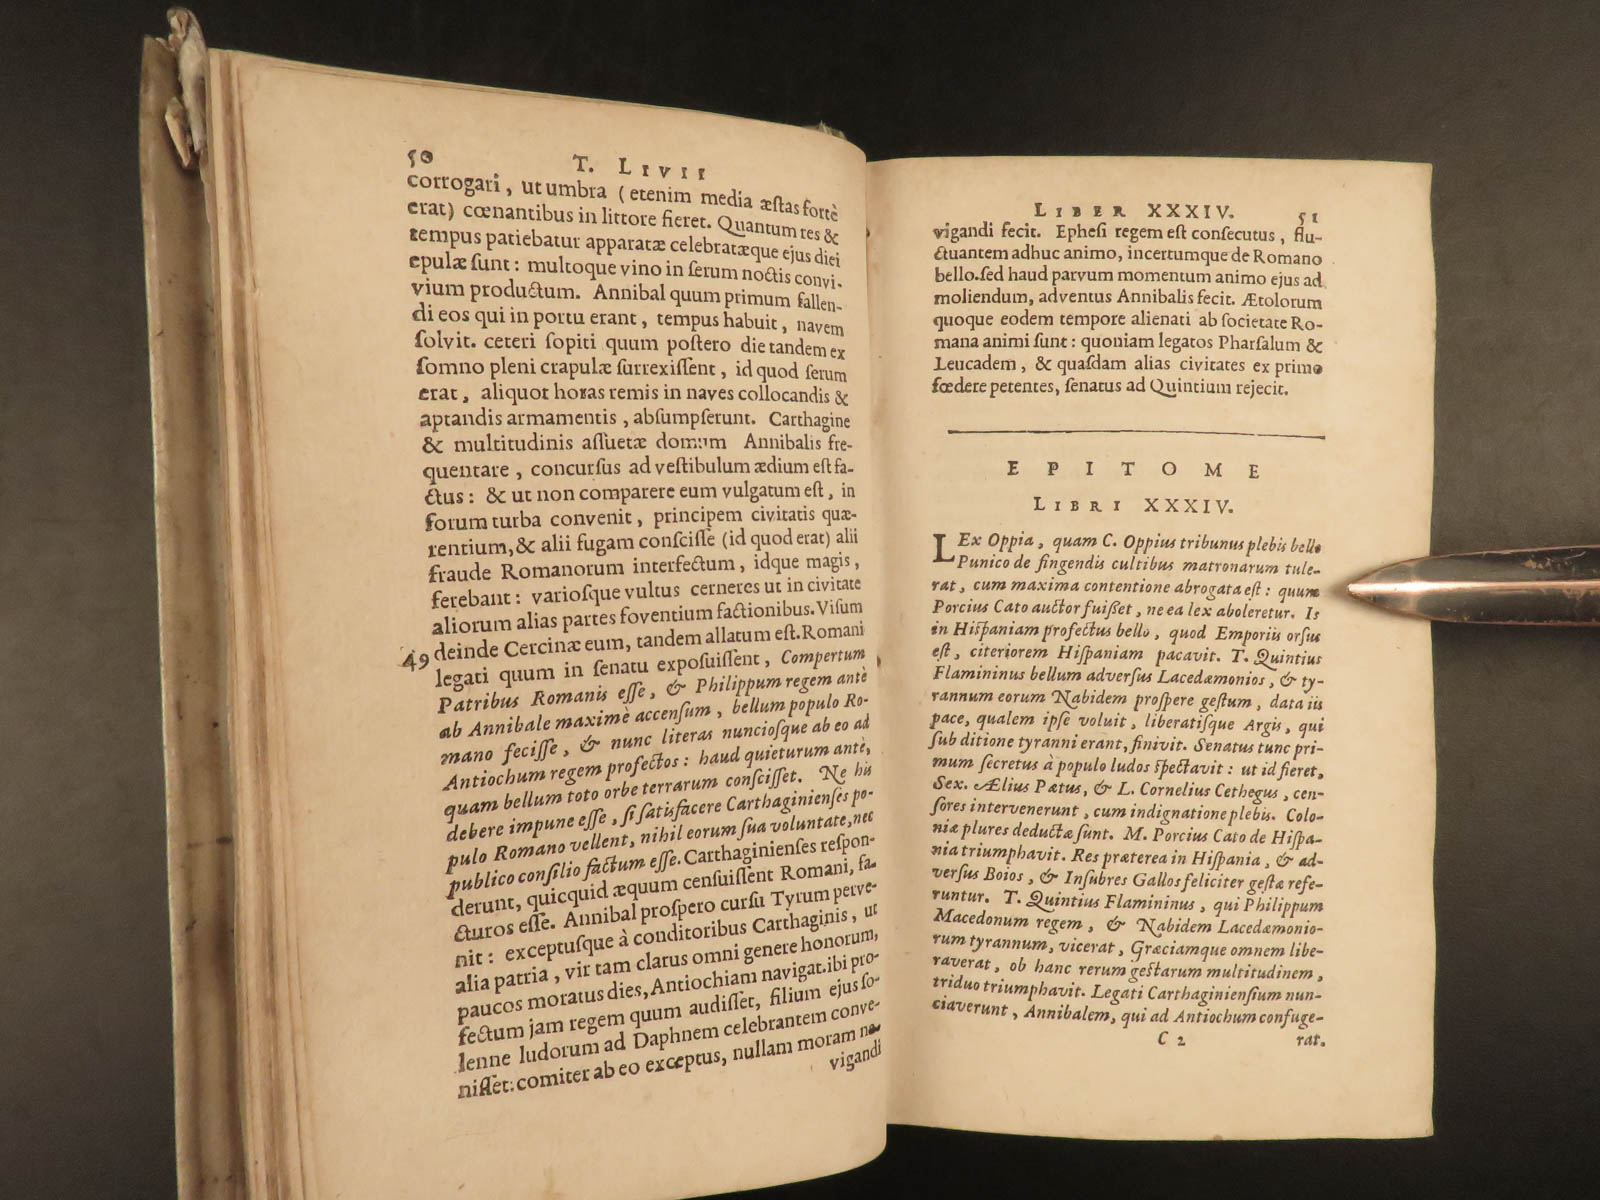 50 T. LIVII
corrogari, ut umbra (etenim media æſtas fortè
erat) cœnantibus in littore fieret. Quantum res &
tempus patiebatur apparatæ celebratæque ejus diei
epulæ ſunt: multoque vino in ſerum noctis convi-
vium productum. Annibal quum primum fallen-
di eos qui in portu erant, tempus habuit, navem
ſolvit. ceteri ſopiti quum poſtero die tandem ex
ſomno pleni crapulæ ſurrexiſſent, id quod ſerum
erat, aliquot horas remis in naves collocandis &
aptandis armamentis, abſumpſerunt. Carthagine
& multitudinis aſſuetæ domum Annibalis fre-
quentare, concurſus ad veſtibulum ædium eſt fa-
ctus: & ut non comparere eum vulgatum eſt, in
forum turba convenit, principem civitatis quæ-
rentium, & alii fugam conſciſſe (id quod erat) alii
fraude Romanorum interfectum, idque magis,
ferebant: variosque vultus cerneres ut in civitate
aliorum alias partes foventium factionibus. Viſum
deinde Cercinæ eum, tandem allatum eſt. Romani
49 legati quum in ſenatu expoſuiſſent, Compertum
Patribus Romanis eſſe, & Philippum regem antè
ab Annibale maximè accenſum, bellum populo Ro-
mano feciſſe, & nunc literas nuncioſque ab eo ad
Antiochum regem profectos: haud quieturum antè,
quam bellum toto orbe terrarum conſciſſet. Ne his
debere impune eſſe, ſi ſatisfacere Carthaginienſes po-
pulo Romano vellent, nihil eorum ſua voluntate, nec
publico conſilio factum eſſe. Carthaginienſes reſpon-
derunt, quicquid æquum cenſuiſſent Romani, fa-
cturos eſſe. Annibal proſpero curſu Tyrum perve-
nit: exceptuſque à conditoribus Carthaginis, ut
alia patria, vir tam clarus omni genere honorum,
paucos moratus dies, Antiochiam navigat. ibi pro-
fectum jam regem quum audiſſet, filium ejus ſo-
lenne ludorum ad Daphnem celebrantem conve-
niſſet: comiter ab eo exceptus, nullam moram na-
vigandi
LIBER XXXIV. 51
vigandi fecit. Epheſi regem eſt conſecutus, flu-
ctuantem adhuc animo, incertumque de Romano
bello. ſed haud parvum momentum animo ejus ad
moliendum, adventus Annibalis fecit. Ætolorum
quoque eodem tempore alienati ab ſocietate Ro-
mana animi ſunt: quoniam legatos Pharſalum &
Leucadem, & quaſdam alias civitates ex primo
fœdere petentes, ſenatus ad Quintium rejecit.
EPITOME
LIBRI XXXIV.
LEx Oppia, quam C. Oppius tribunus plebis bello
Punico de fingendis cultibus matronarum tule-
rat, cum maxima contentione abrogata eſt: quum
Porcius Cato auctor fuiſſet, ne ea lex aboleretur. Is
in Hiſpaniam profectus bello, quod Emporiis orſus
eſt, citeriorem Hiſpaniam pacavit. T. Quintius
Flamininus bellum adverſus Lacedæmonios, & ty-
rannum eorum Nabidem proſpere geſtum, data iis
pace, qualem ipſe voluit, liberatiſque Argis, qui
ſub ditione tyranni erant, finivit. Senatus tunc pri-
mum ſecretus à populo ludos ſpectavit: ut id fieret,
Sex. Ælius Pætus, & L. Cornelius Cethegus, cen-
ſores intervenerunt, cum indignatione plebis. Colo-
niæ plures deductæ ſunt. M. Porcius Cato de Hiſpa-
nia triumphavit. Res præterea in Hiſpania, & ad-
verſus Boios, & Inſubres Gallos feliciter geſtæ refe-
runtur. T. Quintius Flamininus, qui Philippum
Macedonum regem, & Nabidem Lacedæmonio-
rum tyrannum, vicerat, Græciamque omnem libe-
raverat, ob hanc rerum geſtarum multitudinem,
triduo triumphavit. Legati Carthaginienſium nun-
ciaverunt, Annibalem, qui ad Antiochum confuge-
C 2 rat.